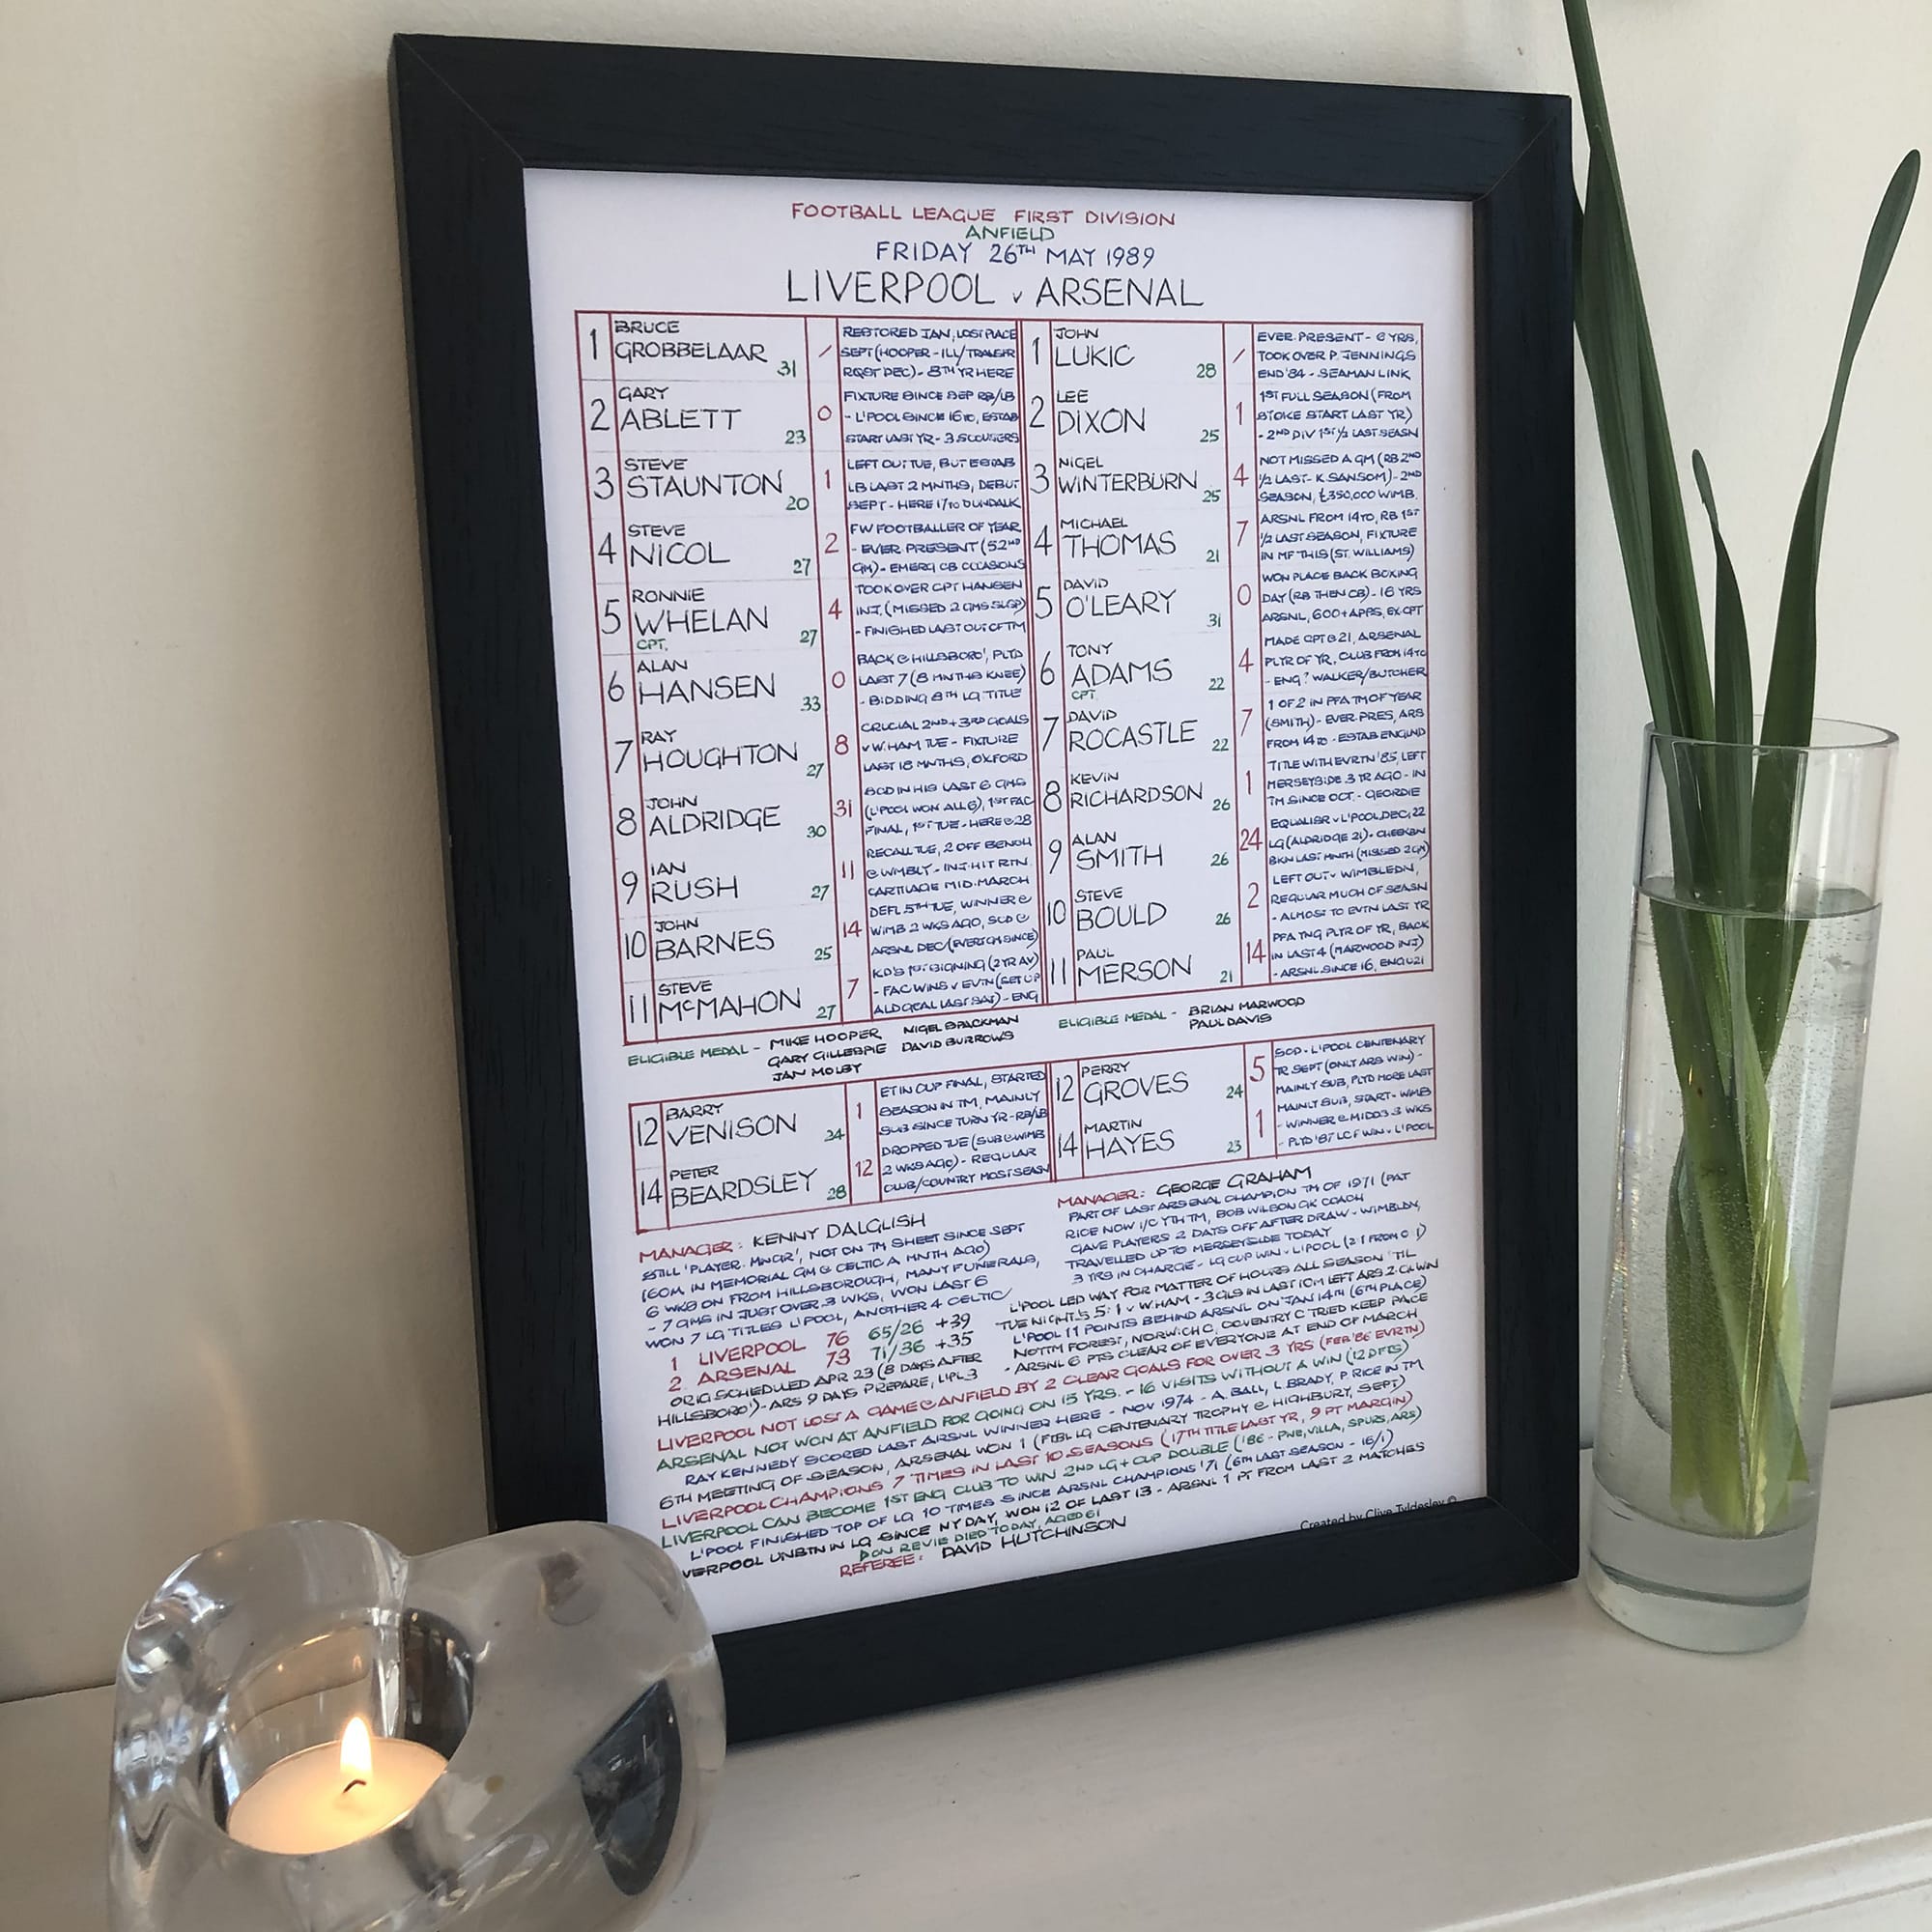 FOOTBALL LEAGUE FIRST DIVISION
ANFIELD
FRIDAY 26TH MAY 1989
LIVERPOOL v ARSENAL
1 BRUCE GROBBELAAR 31 /
RESTORED JAN, LOST PLACE
SEPT (HOOPER - ILL/
DEC) - 8TH YR HERE
2 GARY ABLETT 23 0
FIXTURE SINCE SEP RB/LB
- L'POOL SINCE 16YO, ESTAB
START LAST YR - 3 SCOUSERS
3 STEVE STAUNTON 20 1
LEFT OUT TUE, BUT ESTAB
LB LAST 2 MNTHS, DEBUT
SEPT - HERE 17YO DUNDALK
4 STEVE NICOL 27 2
FW FOOTBALLER OF YEAR
- EVER PRESENT (52ND
GM) - EMERG CB OCCASONS
5 RONNIE WHELAN CPT. 27 4
TOOK OVER CPT HANSEN
INJ, (MISSED 2 GMS
- FINISHED LAST
6 ALAN HANSEN 33 0
BACK @ HILLSBORO', PLYD
LAST 7 (8 MNTHS KNEE)
- BIDDING 8TH LG TITLE
7 RAY HOUGHTON 27 8
CRUCIAL 2ND + 3RD GOALS
v W.HAM TUE - FIXTURE
LAST 18 MNTHS, OXFORD
8 JOHN ALDRIDGE 30 31
SCD IN HIS LAST 6 GMS
(L'POOL WON ALL 6), 1ST FAC
FINAL, 1ST TUE - HERE @ 28
9 IAN RUSH 27 11
RECALL TUE, 2 OFF BENCH
@ WMBLY - INJ HIT RTN
CARTILAGE MID-MARCH
10 JOHN BARNES 25 14
DEFL 5TH TUE, WINNER @
WIMB 2 WKS AGO, SCD @
ARSNL DEC (EVERY GM SINCE)
11 STEVE McMAHON 27 7
KD'S 1ST SIGNING (2YR AV)
- FAC WINS v EVTN (SET UP
ALD GOAL LAST SAT) - ENG
1 JOHN LUKIC 28 /
EVER PRESENT - 6 YRS,
TOOK OVER P. JENNINGS
END '84 - SEAMAN LINK
2 LEE DIXON 25 1
1ST FULL SEASON (FROM
STOKE START LAST YR)
- 2ND DIV 1ST ½ LAST SEASN
3 NIGEL WINTERBURN 25 4
NOT MISSED A GM (RB 2ND
½ LAST - K. SANSOM) - 2ND
SEASON, £350,000 WIMB.
4 MICHAEL THOMAS 21 7
ARSNL FROM 14YO, RB 1ST
½ LAST SEASON, FIXTURE
IN MF THIS (ST. WILLIAMS)
5 DAVID O'LEARY 31 0
WON PLACE BACK BOXING
DAY (RB THEN CB) - 16 YRS
ARSNL, 600+ APPS, EX-CPT
6 TONY ADAMS CPT 22 4
MADE CPT @ 21, ARSENAL
PLYR OF YR, CLUB FROM 14YO
- ENG ? WALKER/BUTCHER
7 DAVID ROCASTLE 22 7
1 OF 2 IN PFA TM OF YEAR
(SMITH) - EVER PRES, ARS
FROM 14YO - ESTAB ENGLND
8 KEVIN RICHARDSON 26 1
TITLE WITH EVRTN '85, LEFT
MERSEYSIDE 3 YR AGO - IN
TM SINCE OCT. - GEORDIE
9 ALAN SMITH 26 24
EQUALISR v L'POOL DEC, 22
LG (ALDRIDGE 21) - CHEEKBN
BKN LAST MNTH (MISSED 2 GM)
10 STEVE BOULD 26 2
LEFT OUT v WIMBLEDN,
REGULAR MUCH OF SEASN
- ALMOST TO EVTN LAST YR
11 PAUL MERSON 21 14
PFA YNG PLYR OF YR, BACK
IN LAST 4 (MARWOOD INJ)
- ARSNL SINCE 16, ENG U21
ELIGIBLE MEDAL - MIKE HOOPER NIGEL SPACKMAN
GARY GILLESPIE DAVID BURROWS
JAN MOLBY
ELIGIBLE MEDAL - BRIAN MARWOOD
PAUL DAVIS
12 BARRY VENISON 24 1
ET IN CUP FINAL, STARTED
SEASON IN TM, MAINLY
SUB SINCE TURN YR - RB/LB
14 PETER BEARDSLEY 28 12
DROPPED TUE (SUB @ WIMB
2 WKS AGO) - REGULAR
CLUB/COUNTRY MOST SEASN
12 PERRY GROVES 24 5
SCD - L'POOL CENTENARY
TR SEPT (ONLY ARS WIN) -
MAINLY SUB, PLYD MORE LAST
14 MARTIN HAYES 23 1
MAINLY SUB, START - WMB
- WINNER @ MIDD3 3 WKS
- PLYD '87 LCF WIN v L'POOL
MANAGER: KENNY DALGLISH
STILL 'PLAYER. MNGR', NOT ON TM SHEET SINCE SEPT
(60M IN MEMORIAL GM @ CELTIC A MNTH AGO)
6 WKS ON FROM HILLSBOROUGH, MANY FUNERALS,
- 7 GMS IN JUST OVER 3 WKS, WON LAST 6
WON 7 LG TITLES L'POOL, ANOTHER 4 CELTIC
1 LIVERPOOL 76 65/26 +39
2 ARSENAL 73 71/36 +35
ORIG SCHEDULED APR 23 (8 DAYS AFTER
HILLSBORO') - ARS 9 DAYS PREPARE, 3
MANAGER: GEORGE GRAHAM
PART OF LAST ARSENAL CHAMPION TM OF 1971 (PAT
RICE NOW I/C YTH TM, BOB WILSON GK COACH
GAVE PLAYERS 2 DAYS OFF AFTER DRAW v WIMBLDN,
TRAVELLED UP TO MERSEYSIDE TODAY
3 YRS IN CHARGE - LG CUP WIN v L'POOL (2:1 FROM 0:1)
L'POOL LED WAY FOR MATTER OF HOURS ALL SEASON 'TIL
TUE NIGHT'S 5:1 v W.HAM - 3 GLS IN LAST 10M LEFT ARS 2 GL WIN
L'POOL 11 POINTS BEHIND ARSNL ON JAN 14TH (6TH PLACE)
NOTTM FOREST, NORWICH C, COVENTRY C TRIED KEEP PACE
- ARSNL 6 PTS CLEAR OF EVERYONE AT END OF MARCH
LIVERPOOL NOT LOST A GAME @ ANFIELD BY 2 CLEAR GOALS FOR OVER 3 YRS (FEB '86 EVRTN)
ARSENAL NOT WON AT ANFIELD FOR GOING ON 15 YRS. - 16 VISITS WITHOUT A WIN (12 DFTS)
RAY KENNEDY SCORED LAST ARSNL WINNER HERE - NOV 1974 - A. BALL, L. BRADY, P. RICE IN TM
6TH MEETING OF SEASON, ARSENAL WON 1 (FTBL LG CENTENARY TROPHY @ HIGHBURY, SEPT)
LIVERPOOL CHAMPIONS 7 TIMES IN LAST 10 SEASONS (17TH TITLE LAST YR, 9 PT MARGIN)
LIVERPOOL CAN BECOME 1ST ENG CLUB TO WIN 2ND LG + CUP DOUBLE ('86 - PNE, VILLA, SPURS, ARS)
L'POOL FINISHED TOP OF LG 10 TIMES SINCE ARSNL CHAMPIONS '71 (6TH LAST SEASON - 16/1)
VERPOOL UNBTN IN LG SINCE NY DAY, WON 12 OF LAST 13 - ARSNL 1 PT FROM LAST 2 MATCHES
DON REVIE DIED TODAY, AGED 61
REFEREE: DAVID HUTCHINSON
Created by Clive Tyldesley ©